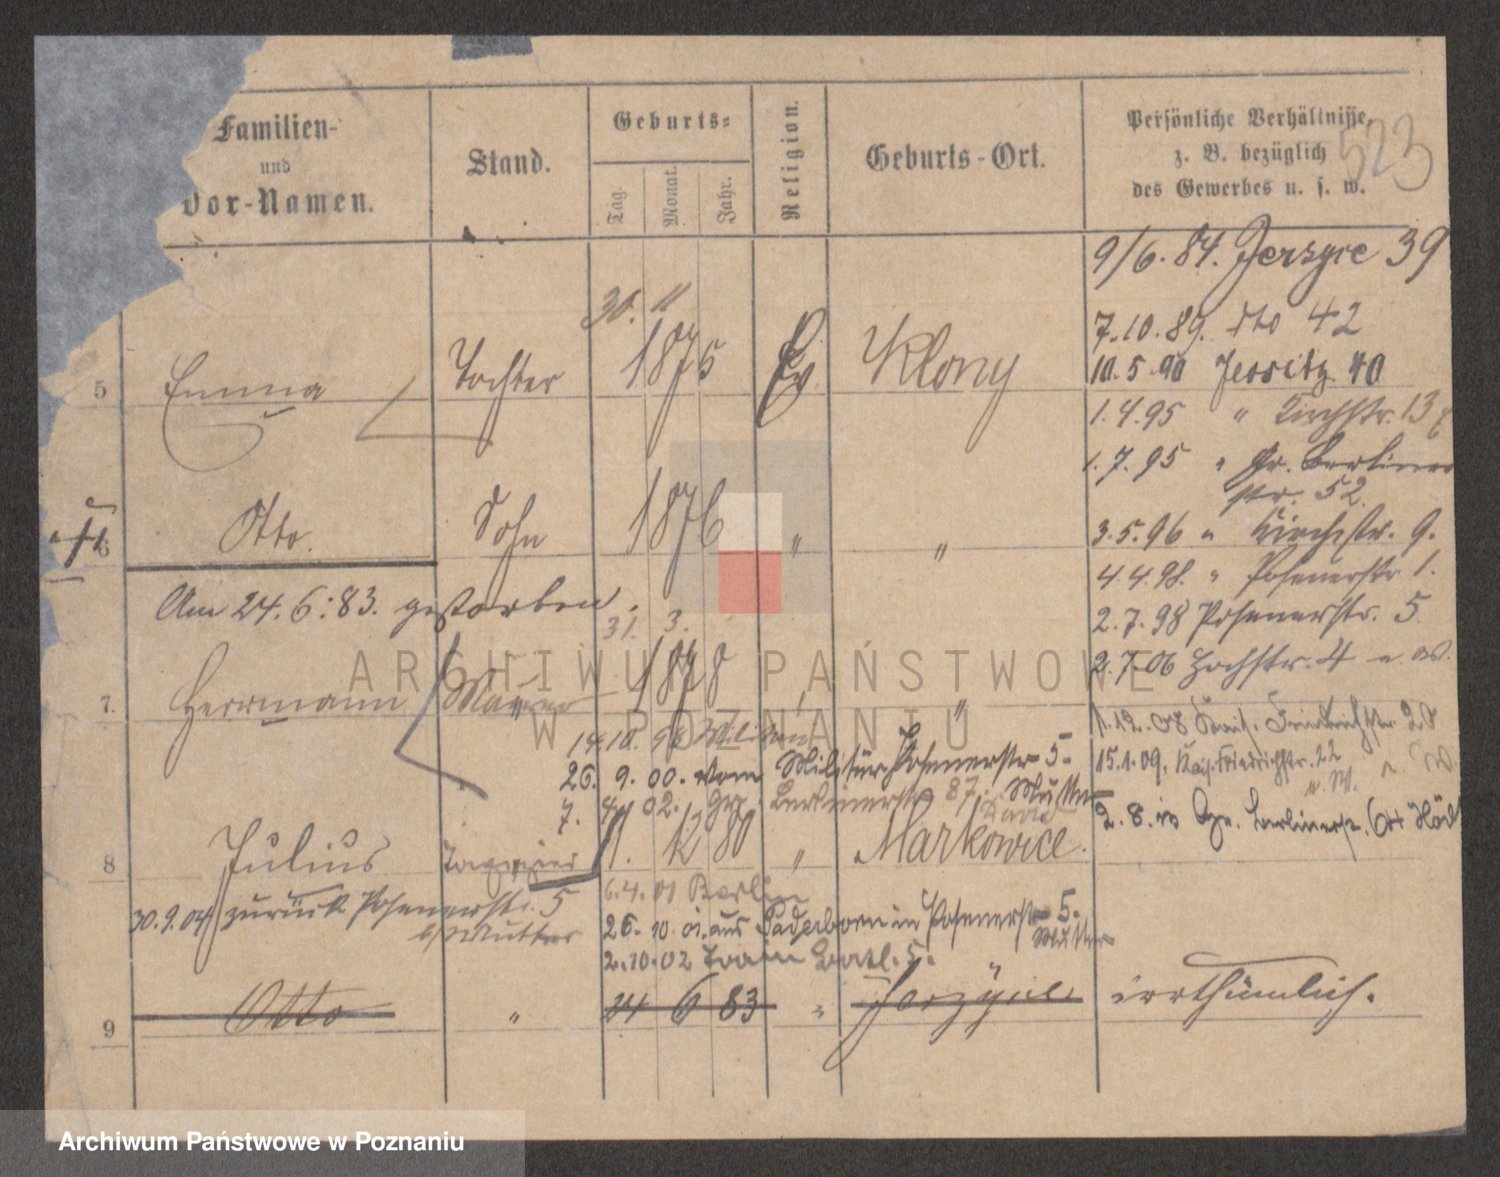 Familien-
und
Vor-Namen.
Stand.
Geburts-
Tag. Monat. Jahr.
Religion.
Geburts-Ort.
Persönliche Verhältnisse
z. B. bezüglich
des Gewerbes u. s. w.
523
9/6. 84. Jerzyce 39
30. 11
7.10.89. dto 42
5 Emma Tochter 1875 Ev Klony
10.5.90 Jersitz 40
1.4.95 " Kirchstr. 13
1.7.95 " Gr. Berliner
str. 52
6 Otto. Sohn 1876 " "
3.5.96 " Kirchstr. 9.
4.4.98. " Posenerstr 1.
Am 24.6.83. gestorben.
2.7.98 Posenerstr. 5
31. 3.
7. Herrmann 1878 " "
2.7.06 Hochstr. 4
1.12.08 Kais. Friedrichstr. 28
14.10. Militär
26. 9. 00. vom Militär Posenerstr 5.
15.1.09. Kais. Friedrichstr. 22
n. W.
7. 4. 02. Gr. Berlinerstr 87. Mutter
2. 8. Gr. Berlinerstr.
8 Julius 1. 12 80 " Markowice.
6.4.01 Berlin
30.9.04 zurück Posenerstr. 5
b/Mutter
26. 10. 01. aus Paderborn in Posenerstr 5.
Mutter
2.10.02
9 Otto " 24 6 83 " Jerzyce irrthümlich.
ARCHIWUM PAŃSTWOWE
W POZNANIU
Archiwum Państwowe w Poznaniu